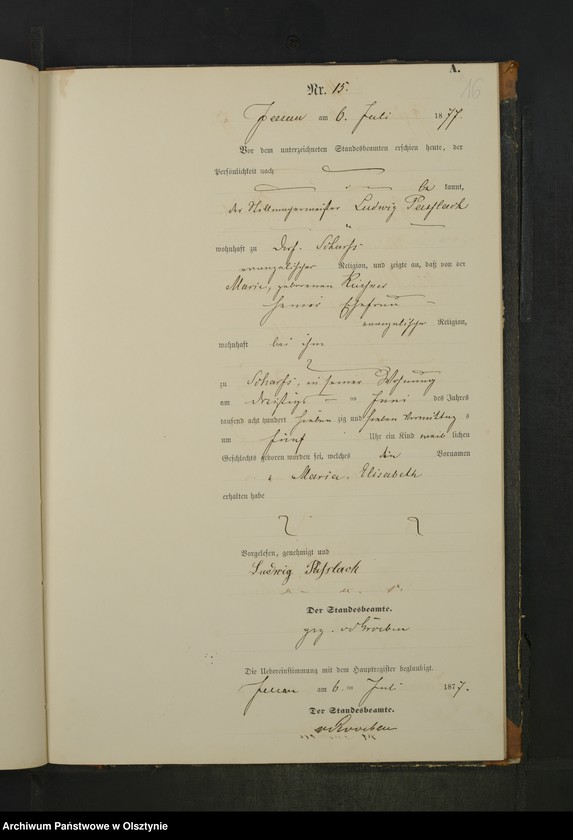 A.
Nr. 15.
16
am 6. Juli 1877.
Vor dem unterzeichneten Standesbeamten erschien heute, der
Persönlichkeit nach
be kannt,
der Stellmachermeister Ludwig
wohnhaft zu Dorf Scharfs
evangelischer Religion, und zeigte an, daß von der
Marie, geborenen
seiner Ehefrau
evangelischer Religion,
wohnhaft bei ihm
zu Scharfs, in seiner Wohnung
am dreißigsten Juni des Jahres
tausend acht hundert sieben zig und sieben Vormittags
um fünf Uhr ein Kind weib lichen
Geschlechts geboren worden sei, welches die Vornamen
Maria Elisabeth
erhalten habe
Vorgelesen, genehmigt und
Ludwig
Der Standesbeamte.
gez. vd Gröben
Die Uebereinstimmung mit dem Hauptregister beglaubigt.
am 6. Juli 1877.
Der Standesbeamte.
Archiwum Państwowe w Olsztynie